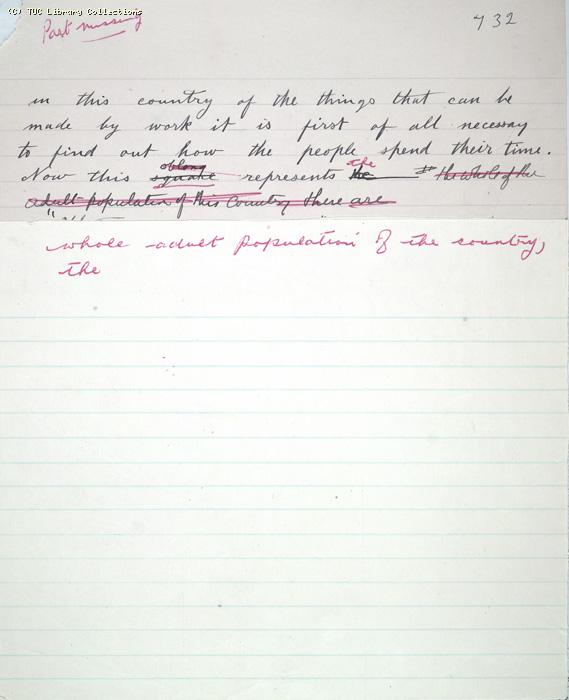 (C) TUC Library Collections
Part missing
732
in this country of the things that can be
made by work it is first of all necessary
to find out how the people spend their time.
oblong the
Now this square represents the the whole of the
adult population of this Country there are
whole adult population of the country,
the